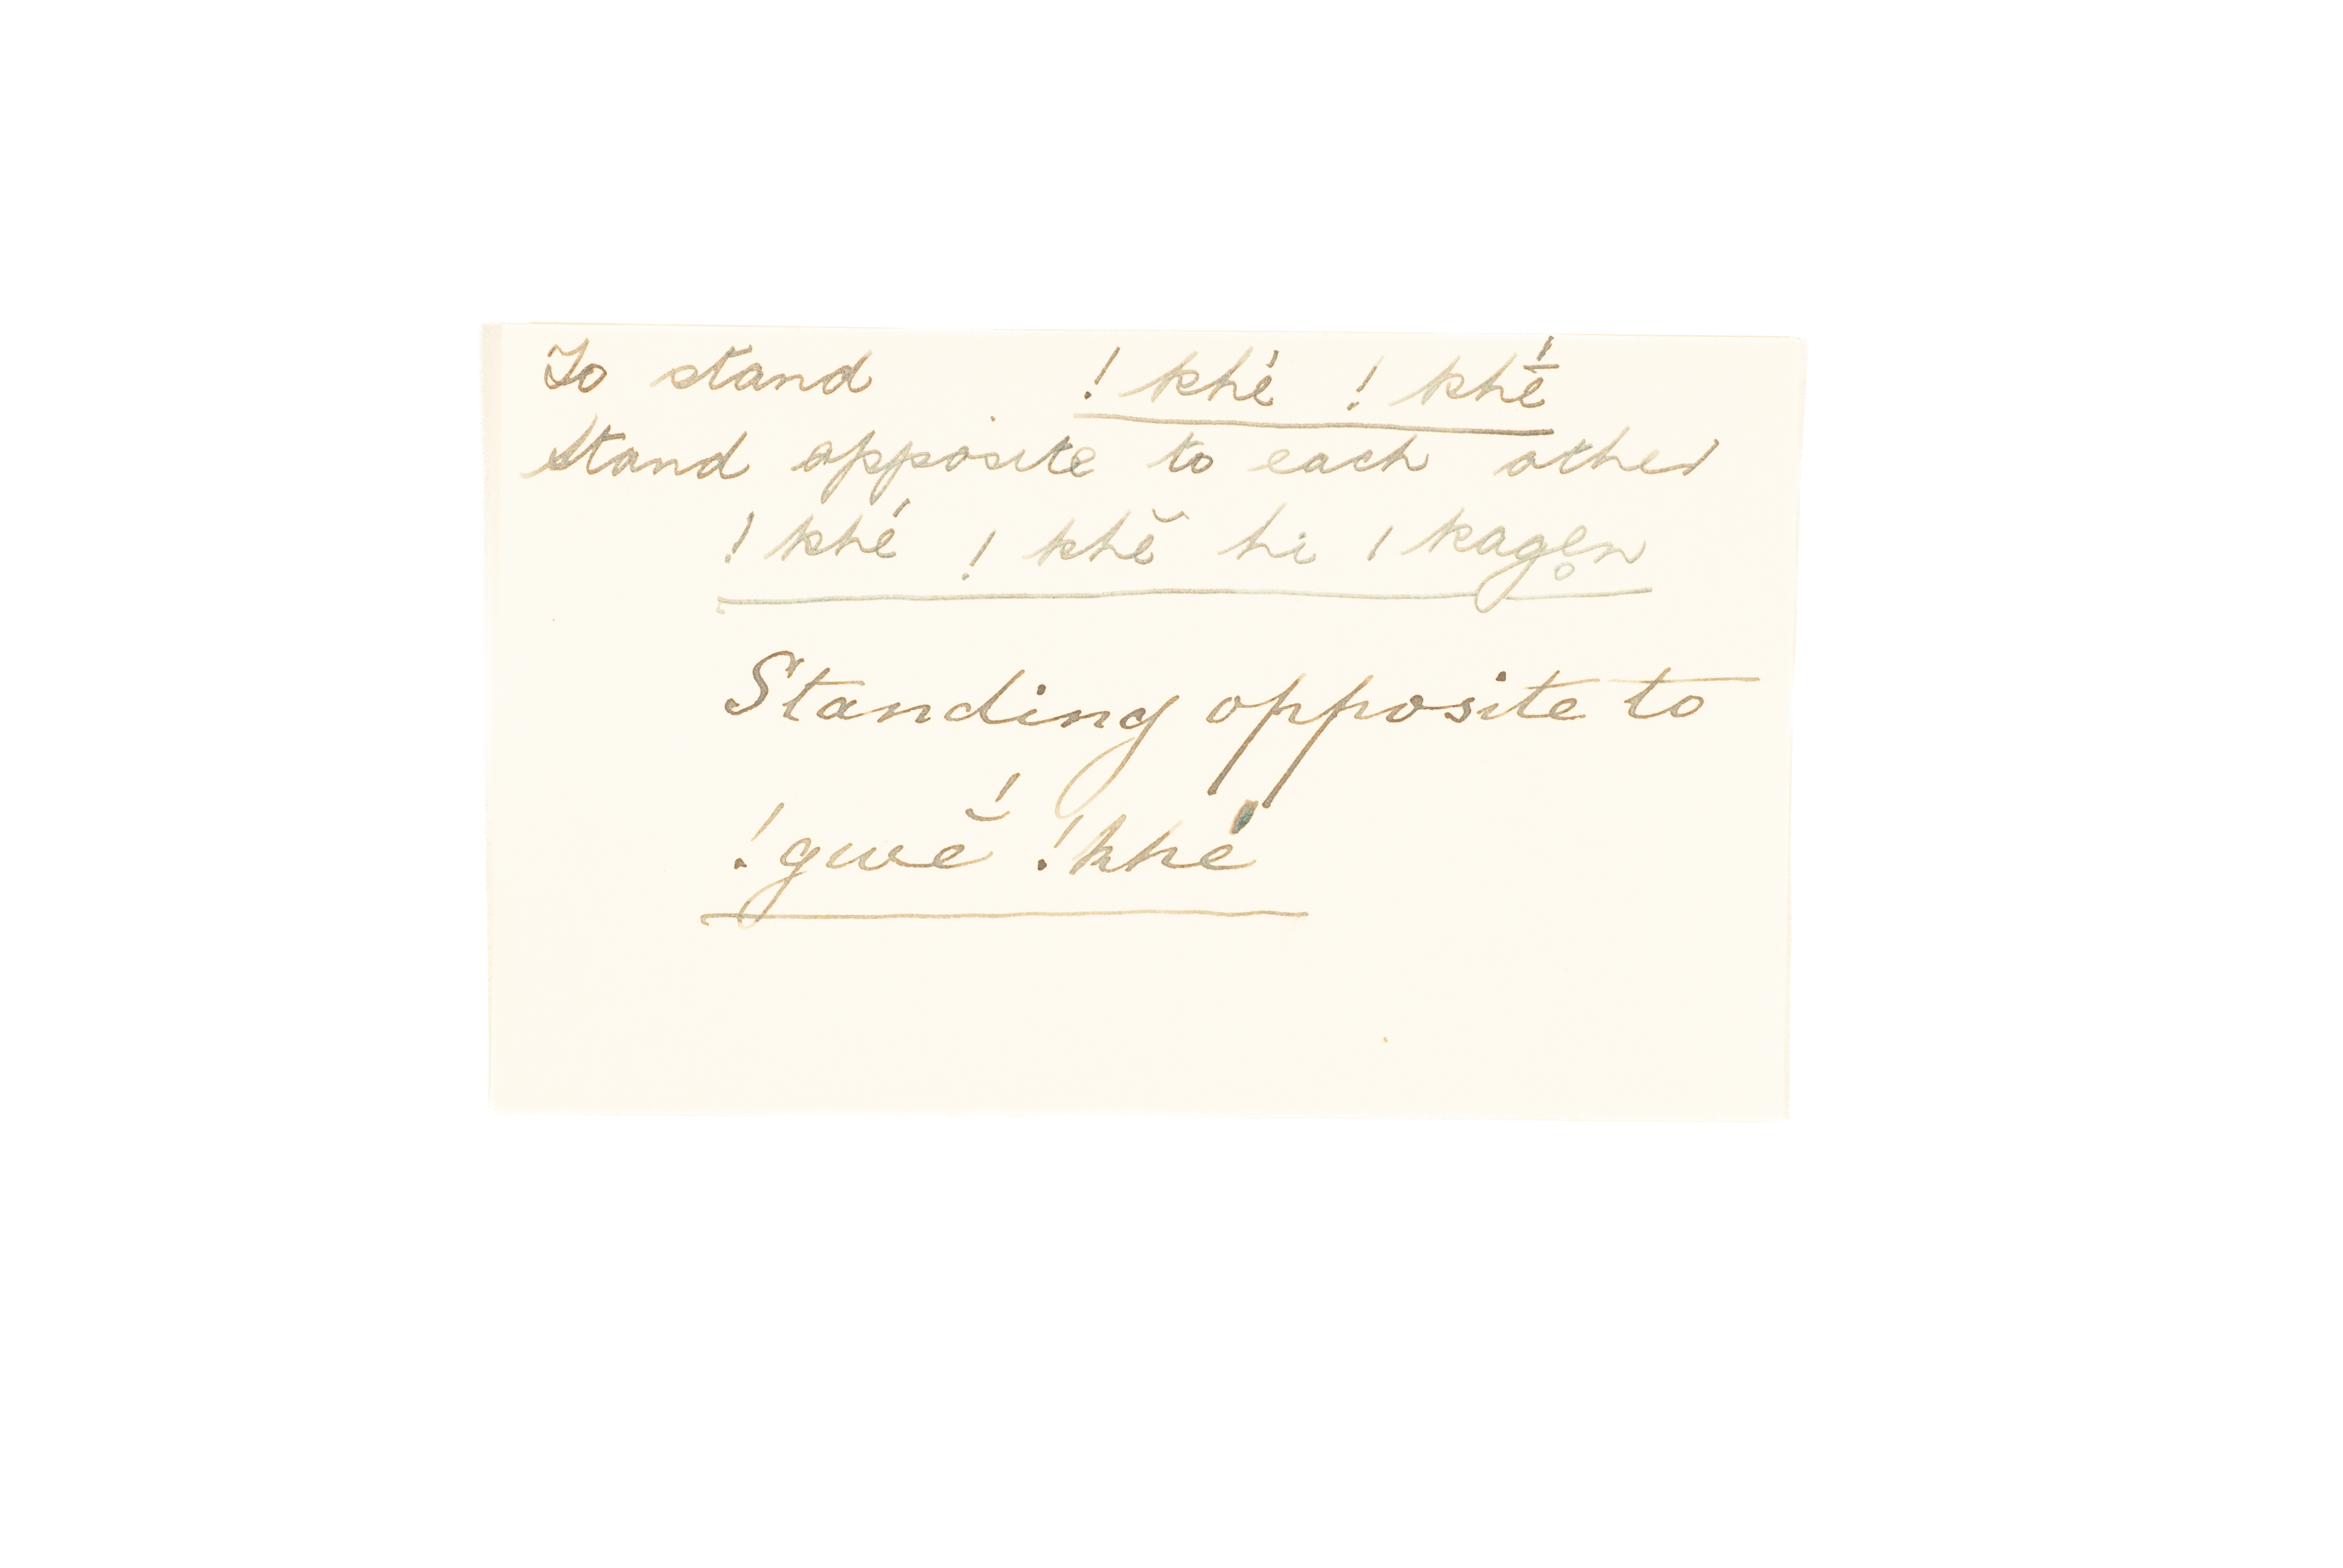 To stand ! khé ! khḗ
Stand opposite to each other
! khé ! khĕ hi ǀ kagen̥
Standing opposite to
! gwĕ́ ! khé